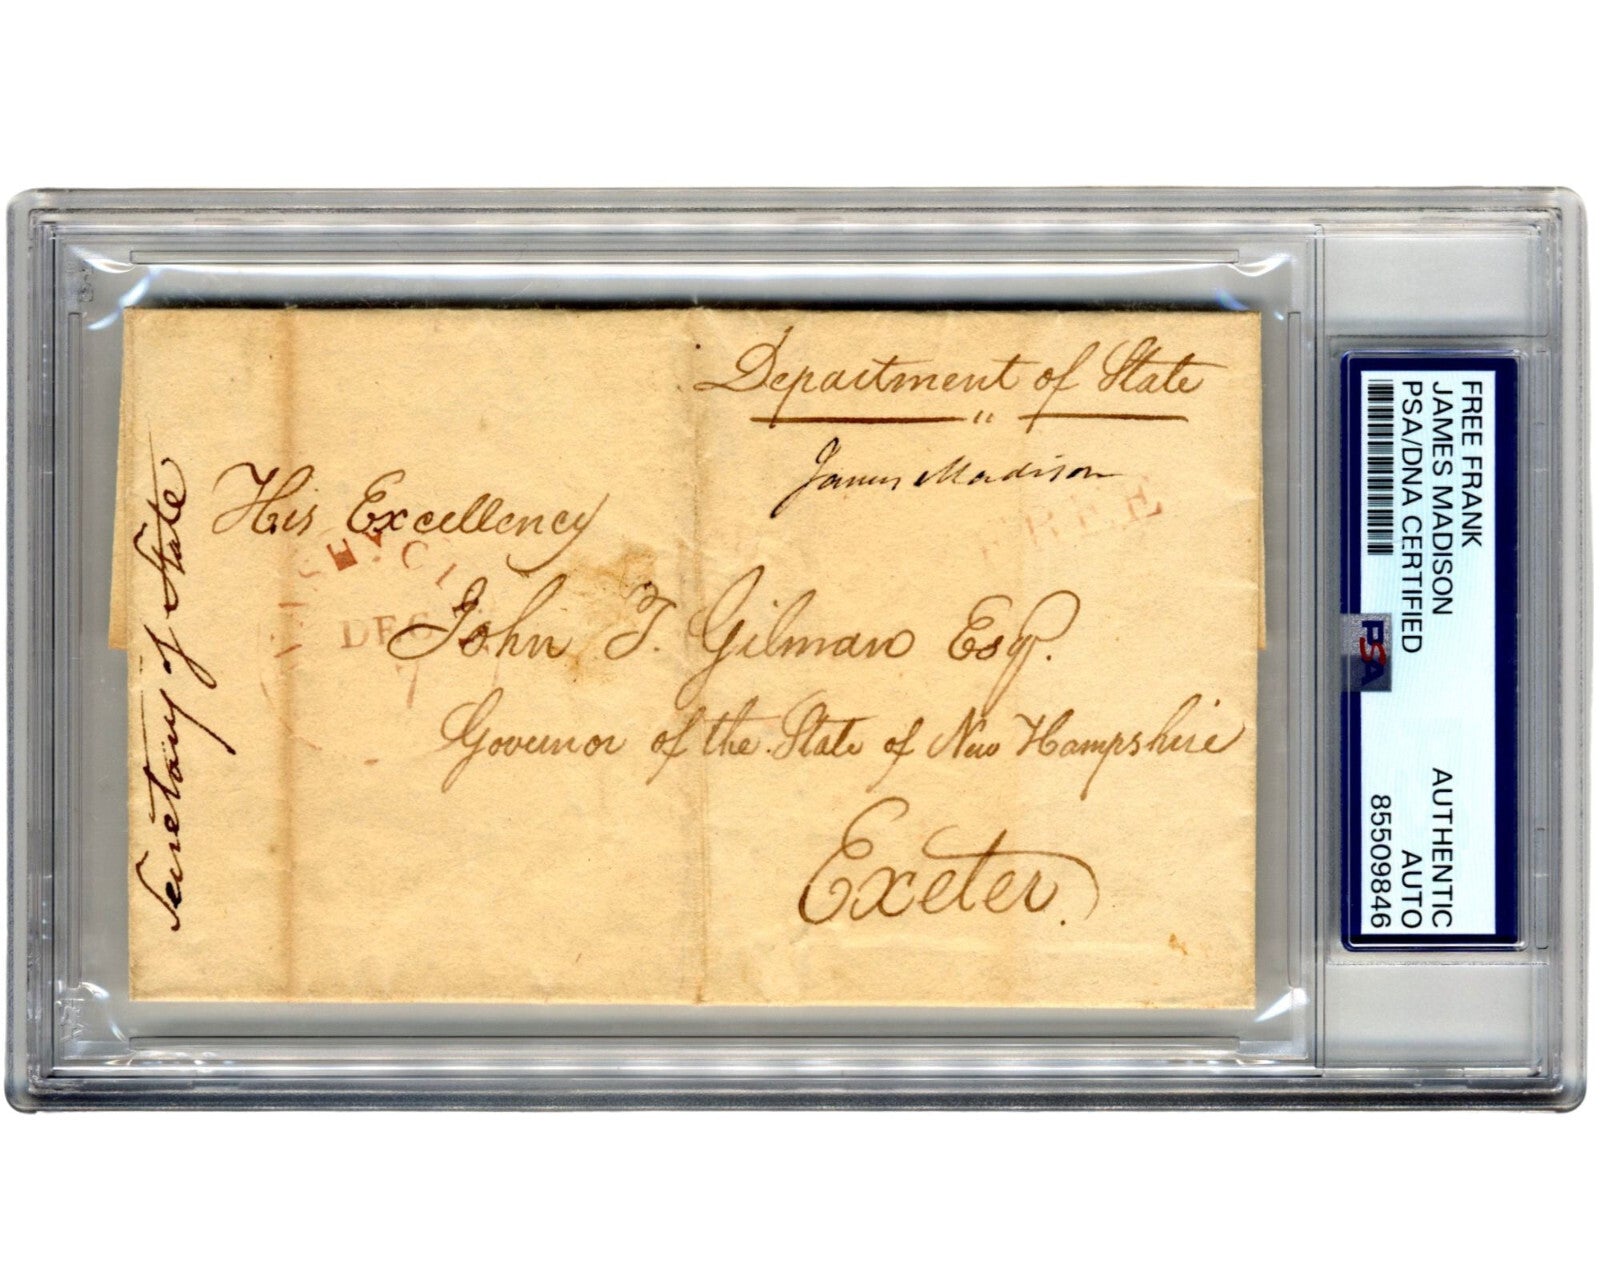 Department of State
"
James Madison
FREE
His Excellency
DEC
John T. Gilman Esqr.
Governor of the State of New Hampshire
Exeter.
Secretary of State
FREE FRANK
JAMES MADISON
PSA/DNA CERTIFIED
AUTHENTIC
AUTO
85509846
PSA